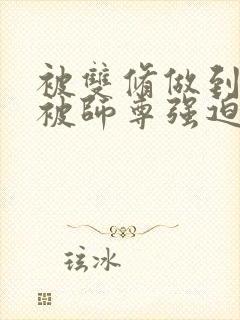 被双脩做到
被師尊强迫
玹冰